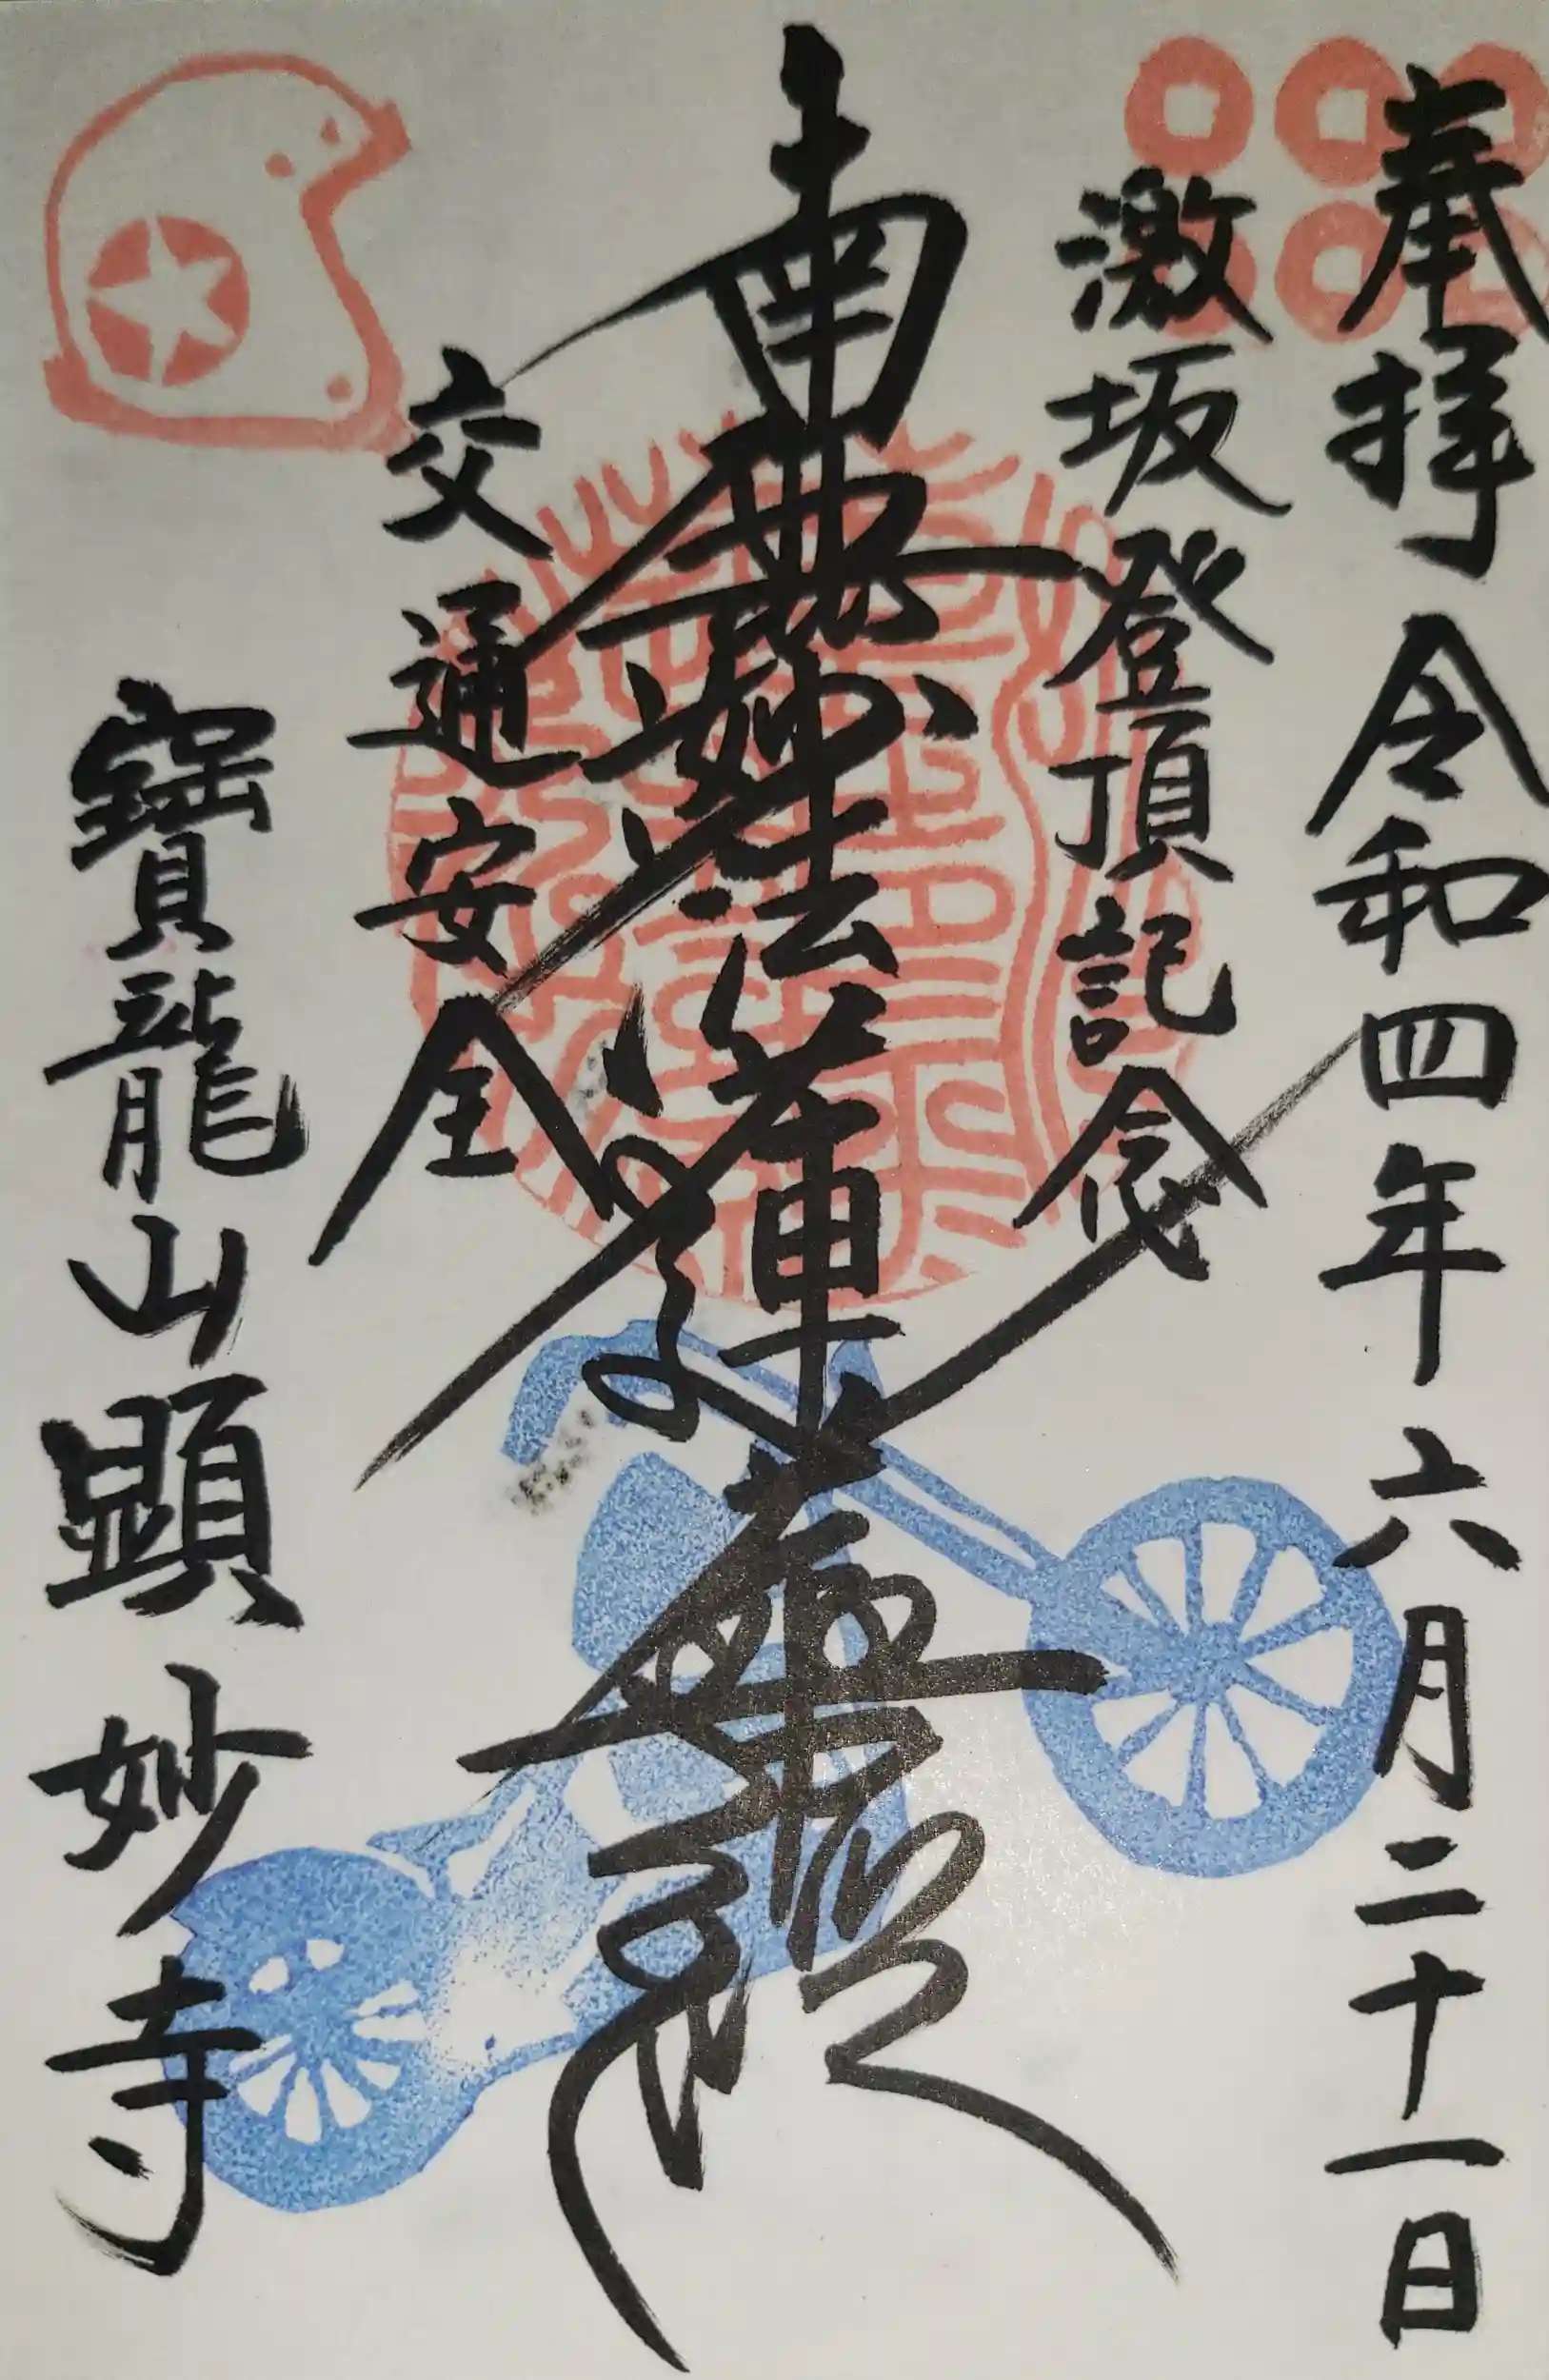 奉拝 令和四年六月二十一日
激坂登頂記念
南無妙法蓮華経
交通安全
寶龍山顕妙寺